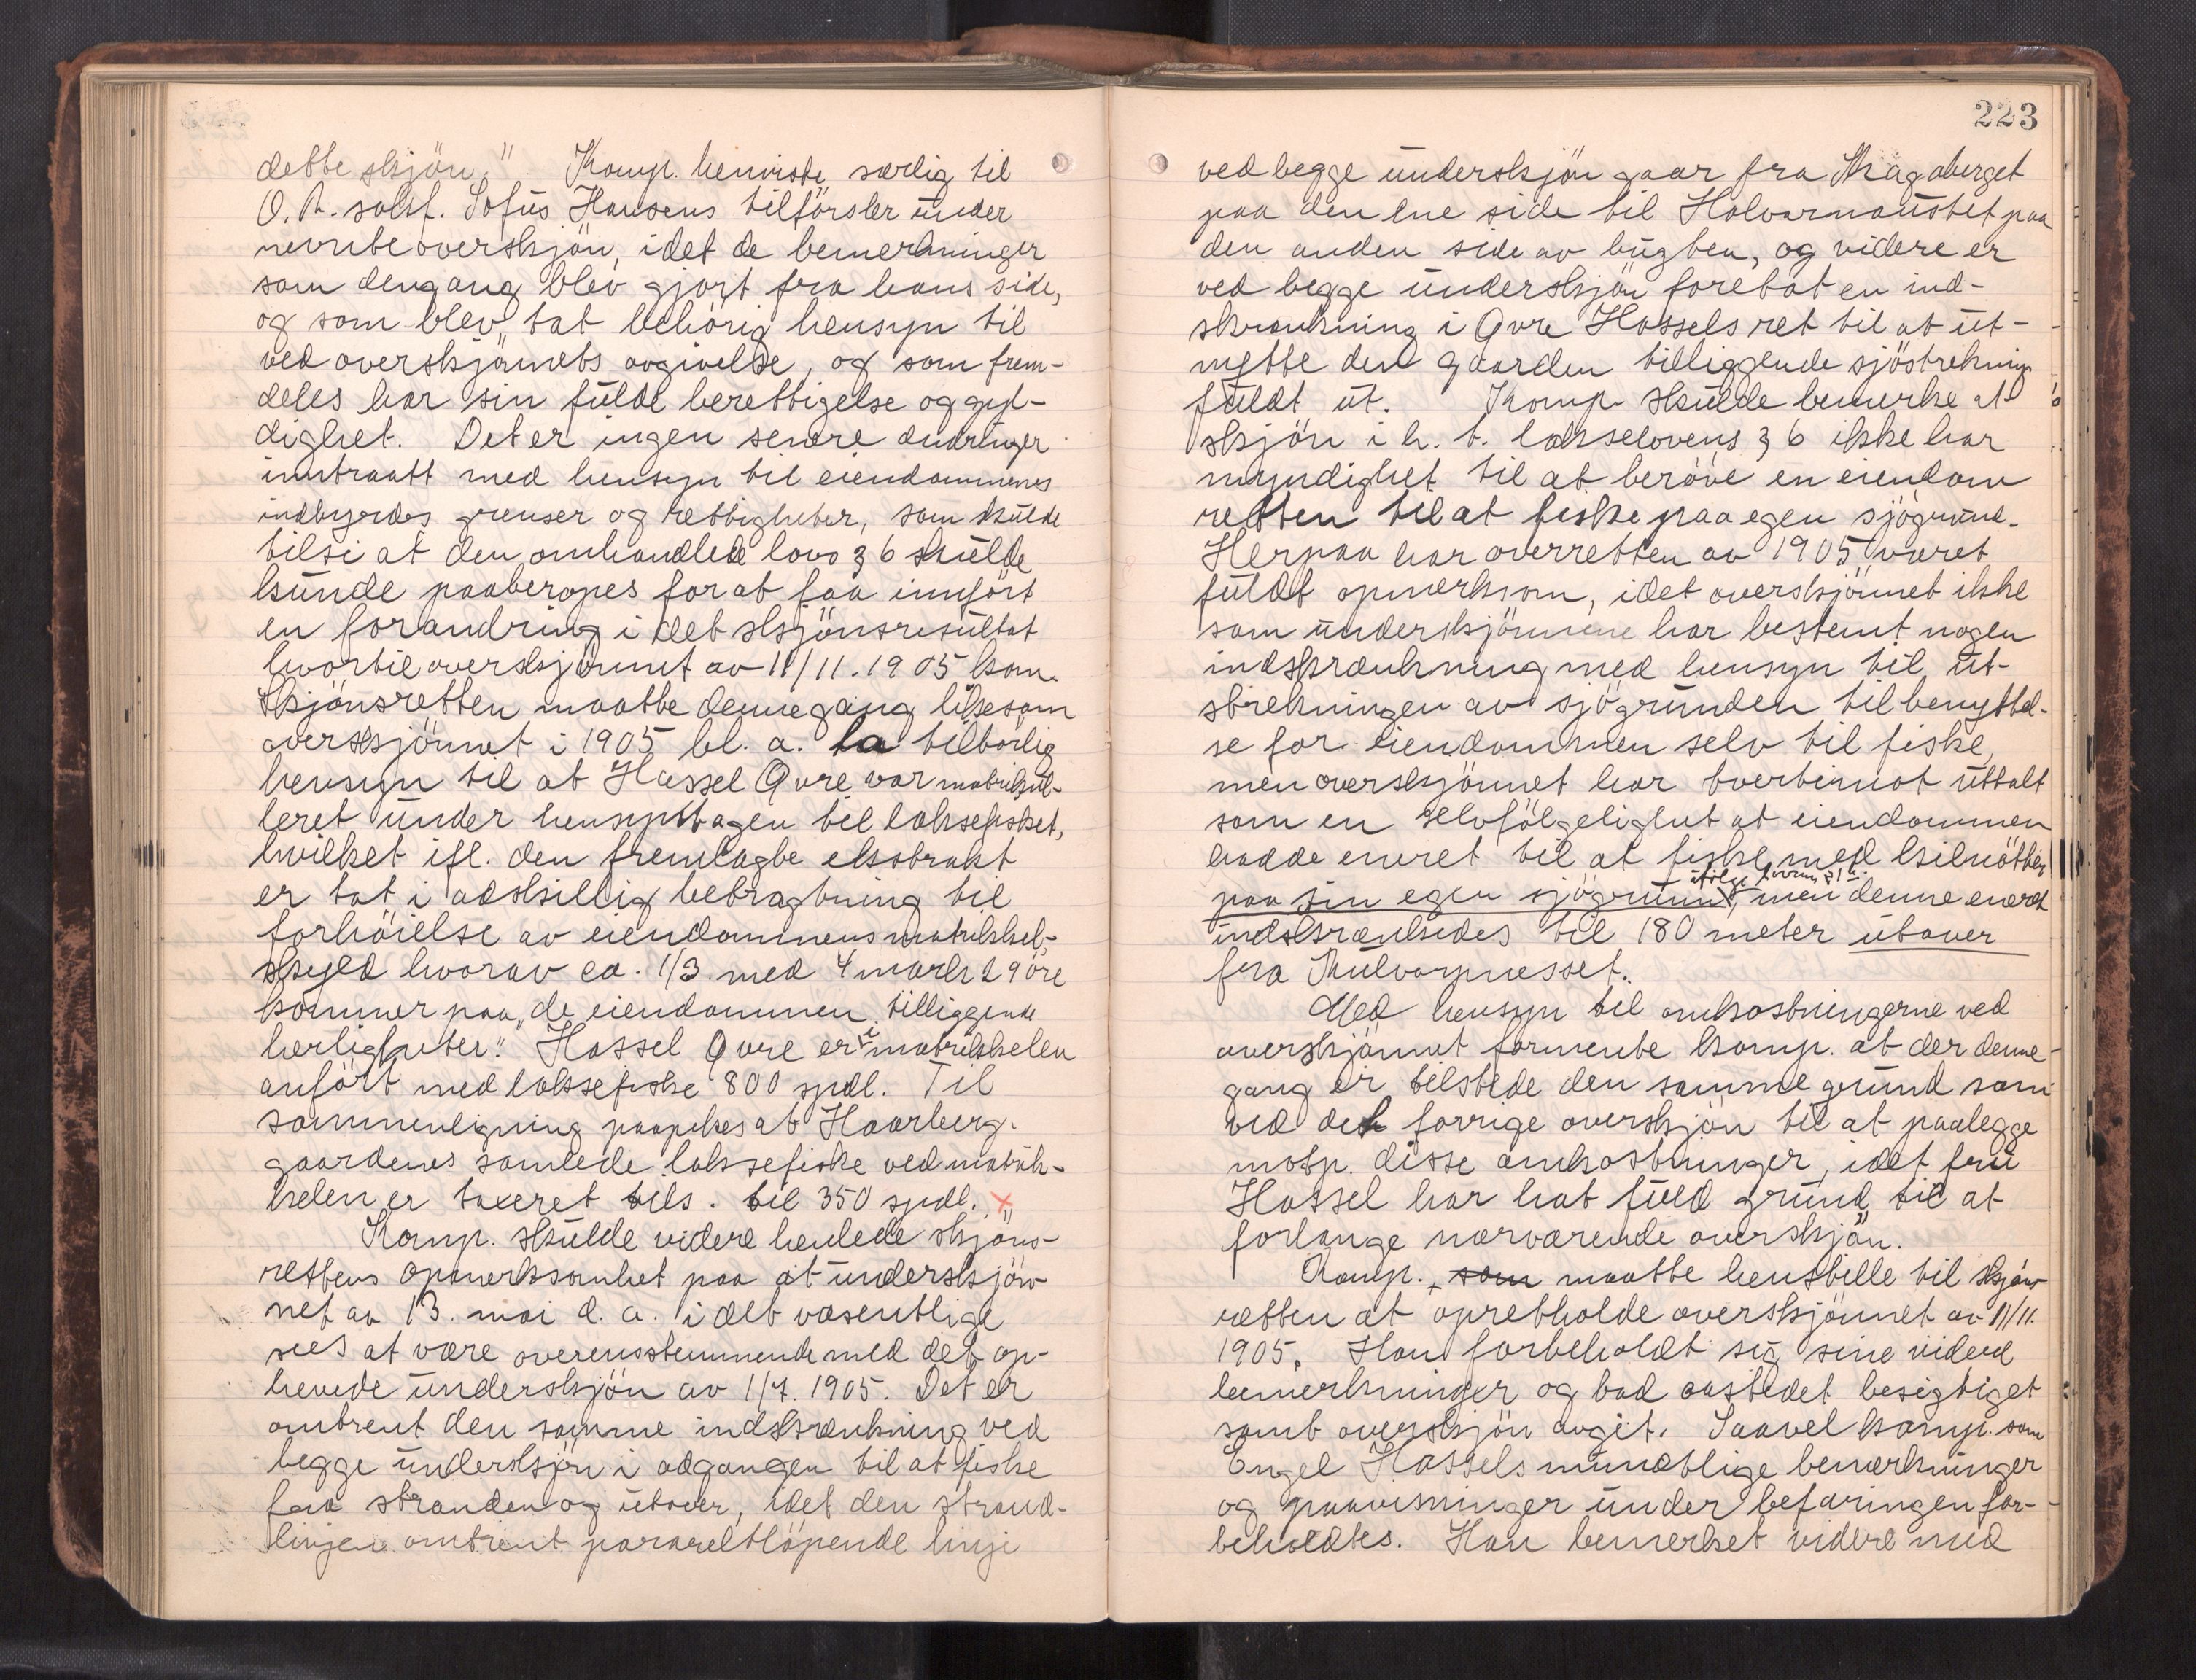 dette skjön." Komp. henviste særlig til
O.R. sakf. Sofus Hansens tilförsler under
nevnte overskjön, idet de bemerkninger
som dengang blev gjort fra hans side,
og som blev tat behörig hensyn til
ved overskjönnets avgivelse, og som frem-
deles har sin fulde berettigelse og gyl-
dighet. Det er ingen senere endringer
inntraatt med hensyn til eiendommenes
indbyrdes grenser og rettigheter, som skulde
tilsi at den omhandlede lovs § 6 skulde
kunde paaberopes for at faa innfört
en forandring i det skjönsresultat
hvortil overskjönnet av 11/11.1905 kom.
Skjönsretten maatte dennegang likesom
overskjönnet i 1905 bl. a. ta tilbörlig
hensyn til at Hassel Övre var matriku-
leret under hensyntagen til laksefisket,
hvilket ifl. den fremlagte ekstrakt
er tat i adskillig betragtning til
forhöielse av eiendommens matrikkel-
skyld hvorav ca. 1/3 med 4 mark 29 öre
kommer paa "de eiendommen tilliggende
herligheter." Hassel Övre er i matrikkelen
anfört med laksefiske 800 spdl. Til
sammenligning paapekes at Haarberg-
gaardenes samlede laksefiske ved matrik-
kelen er taxeret tils. til 350 spdl. x
Komp. skulde videre henlede skjöns-
rettens opmerksomhet paa at underskjön-
net av 13. mai d. a. i det væsentlige
sees at være overensstemmende med det op-
hevede underskjön av 1/7. 1905. Det er
omtrent den samme indskrænkning ved
begge underskjön i adgangen til at fiske
fra stranden og utover, idet den strand-
linjen omtrent pararelt löpende linje
223
ved begge underskjön gaar fra Kragaberget
paa den ene side til Halvarnaustet paa
den anden side av bugten, og videre er
ved begge underskjön foretat en ind-
skrænkning i Övre Hassels ret til at ut-
nytte den gaarden tilliggende sjöstrekning
fuldt ut. Komp. skulde bemerke at
skjön i h. t. lakselovens § 6 ikke har
myndighet til at beröve en eiendom
retten til at fiske paa egen sjögrund.
Herpaa har overretten av 1905 været
fuldt opmerksom, idet overskjönnet ikke
som underskjönnene har bestemt nogen
indskrænkning med hensyn til ut-
strekningen av sjögrunden til benyttel-
se for eiendommen selv til fiske,
men overskjönnet har tvertimot uttalt
som en selvfölgelighet at eiendommen
hadde eneret til at fiske med kilnötter
paa sin egen sjögrunn, men denne eneret
indskrænkedes til 180 meter utover
fra Kulvarpnesset.
Med hensyn til omkostningerne ved
overskjönnet formente komp. at der denne-
gang er tilstede den samme grund som
ved det forrige overskjön til at paalegge
motp. disse omkostninger, idet fru
Hassel har hat fuld grund til at
forlange nærværende overskjön.
Komp. som maatte henstille til skjöns-
retten at opretholde overskjönnet av 11/11.
1905. Han forbeholdt sig sine videre
bemerkninger og bad aastedet besigtiget
samt overskjön avgit. Saavel komp. som
Engel Hassels mundtlige bemerkninger
og paavisninger under befaringen for-
beholdtes. Han bemerket videre med